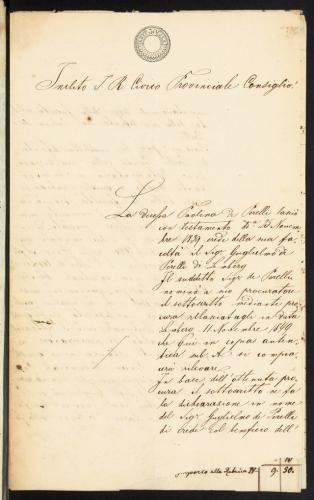 Inclito I. R. Civico Provinciale Consiglio!
La Paolina de Perelli lasciò
con testamento d.º 23 Novem-
bre 1839 erede della sua fa-
coltà il Sig.r Guglielmo de
Perelli di
Il suddetto Sig.r de Perelli
nominò a suo procuratore
il sottoscritto mediante pro-
cura rilasciatagli in data
11. Novembre 1849
che qui in copia auten-
tica sub. A si compia-
cerà rilevare.
In base dell'ottenuta pro-
cura il sottoscritto ne fa
la dichiarazione in nome
del Sig.r Guglielmo de Perelli
di erede col beneficio dell'
importo alla Rubrica IV. 9. 30.